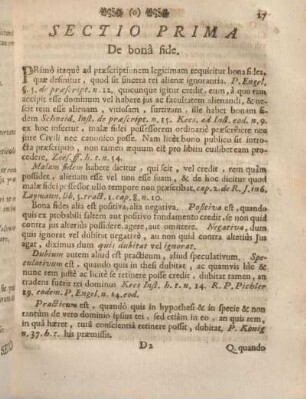 (o) 27
SECTIO PRIMA
De bonâ fide.
PRimò itaquè ad præscriptionem legitimam requiritur bona fides,
quæ definitur, quod sit sincera rei alienæ ignorantia. P. Engel,
§. 3. de præscript. n. 12. quicunque igitur credit, eum, à quo rem
accipit esse dominum vel habere jus ac facultatem alienandi, & ne-
scit rem esse alienam, vitiosam, furtivam, ille habet bonam si-
dem Schneid. Inst. de præscript. n. 15. Kees, ad Inst. eod. n. 9.
ex hoc infertur, malæ fidei possessorem ordinariè præscribere nec
jure Civili nec canonico posse. Nam licet bono publico sit intro-
cta præscriptio, non tamen æquum est pro libitu cuilibet eam pro-
cedere, Zoes. ff. h. t. n. 54.
Malam fidem habere dicitur, qui scit, vel credit, rem quam
possidet, alienam esse vel non esse suam, & de hoc dicitur quod
malæ fidei possessor ullo tempore non præscribat, cap. 2. de R. J. in 6.
Laymann. lib. 3. tract. 1. cap. §. n. 10.
Bona fides alia est positiva, alia negativa. Positiva est, quando
quis ex probabili saltem aut positivo fundamento credit, se non quid
contra jus alterius possidere, agere, aut omittere. Negativa, dum
quis ignorat vel dubitat negativè, an non quid contra alterius Jus
agat, diximus dum quis dubitat vel ignorat.
Dubium autem aliud est practicum, aliud speculativum. Spe-
culativum est, quando quis in thesi dubitat, ac quamvis litè & no-
viter se tamen justè ac licitè te retinere posse credit, dubitat tamen, an
tradens fuerit rei dominus Kees Inst. h. t. n. 14. R. P. Pichler
19. eodem. P. Engel, n. 14. eod.
Practicum est, quando quis in hypothesi & in specie & non
tantum de vero dominio ipsius rei, sed etiam in eo, an quis rem,
in quâ hæret, tutâ conscientiâ retinere possit, dubitat, P. König
n. 37. h. t. his præmissis.
D 2 Q. quando